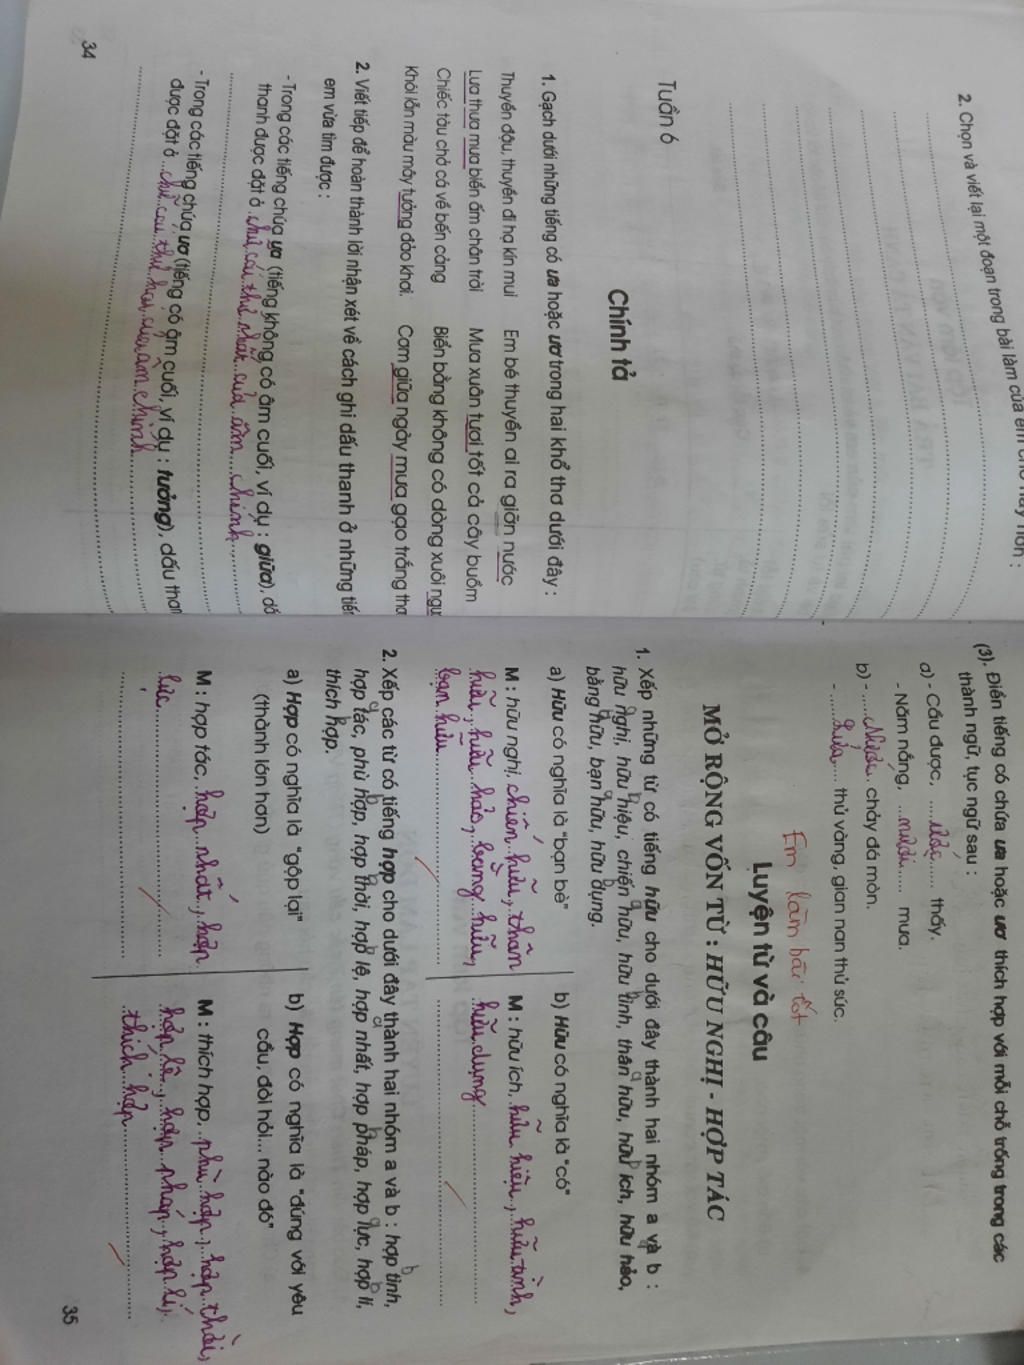 2. Chọn và viết lại một đoạn trong bài làm của em cho hay hơn :
Tuần 6
Chính tả
1. Gạch dưới những tiếng có ưa hoặc ươ trong hai khổ thơ dưới đây :
Thuyền đậu, thuyền đi hạ kín mui
Lưa thưa mưa biển ấm chân trời
Chiếc tàu chở cá về bến cảng
Khói lẫn màu mây tưởng đảo khơi.
Em bé thuyền ai ra giỡn nước
Mưa xuân tươi tốt cả cây buồm
Biển bằng không có dòng xuôi ngư
Cơm giữa ngày mưa gạo trắng thơ
2. Viết tiếp để hoàn thành lời nhận xét về cách ghi dấu thanh ở những tiến
em vừa tìm được :
- Trong các tiếng chứa ưa (tiếng không có âm cuối, ví dụ : giữa), dấ
thanh được đặt ở chữ cái thứ nhất của âm chính
- Trong các tiếng chứa ươ (tiếng có âm cuối, ví dụ : tưởng), dấu than
được đặt ở chữ cái thứ hai của âm chính
34
(3). Điền tiếng có chứa ưa hoặc ươ thích hợp với mỗi chỗ trống trong các
thành ngữ, tục ngữ sau :
a) - Cầu được, ước thấy.
- Năm nắng, mười mưa.
b) - Nước chảy đá mòn.
- Lửa thử vàng, gian nan thử sức.
Em làm bài tốt
Luyện từ và câu
MỞ RỘNG VỐN TỪ : HỮU NGHỊ - HỢP TÁC
1. Xếp những từ có tiếng hữu cho dưới đây thành hai nhóm a và b :
hữu nghị, hữu hiệu, chiến hữu, hữu tình, thân hữu, hữu ích, hữu hảo,
bằng hữu, bạn hữu, hữu dụng.
a) Hữu có nghĩa là "bạn bè"
M : hữu nghị, chiến hữu, thân
hữu, hữu hảo, bằng hữu,
bạn hữu
b) Hữu có nghĩa là "có"
M : hữu ích, hữu hiệu, hữu tình,
hữu dụng
2. Xếp các từ có tiếng hợp cho dưới đây thành hai nhóm a và b : hợp tình,
hợp tác, phù hợp, hợp thời, hợp lệ, hợp nhất, hợp pháp, hợp lực, hợp lí,
thích hợp.
a) Hợp có nghĩa là "gộp lại"
(thành lớn hơn)
M : hợp tác, hợp nhất, hợp
lực
b) Hợp có nghĩa là "đúng với yêu
cầu, đòi hỏi... nào đó"
M : thích hợp, phù hợp, hợp thời,
hợp lệ, hợp pháp, hợp lí,
thích hợp
35